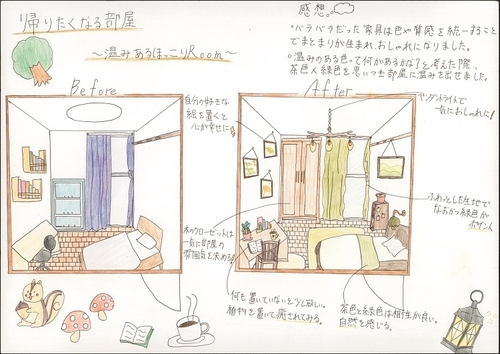 帰りたくなる部屋
～温みあるほっこりRoom～
感想。
・バラバラだった家具は色や質感を統一することでまとまりが生まれ、おしゃれになりました。
・温みのある色って何があるかな?と考えた際、茶色へ緑色を思いつき部屋に温みを出せました。
Before
After
自分の好きな
絵を置くと
心が幸せに
ペンダントライトで
一気におしゃれに!
ふわっとした生地で
なおかつ緑色が
ポイント
木のクローゼットは
一気に部屋の
雰囲気を決める!
何も置いていないと少し寂しい。
植物を置いて癒されてみる。
茶色と緑色は相性が良い。
自然を感じる。